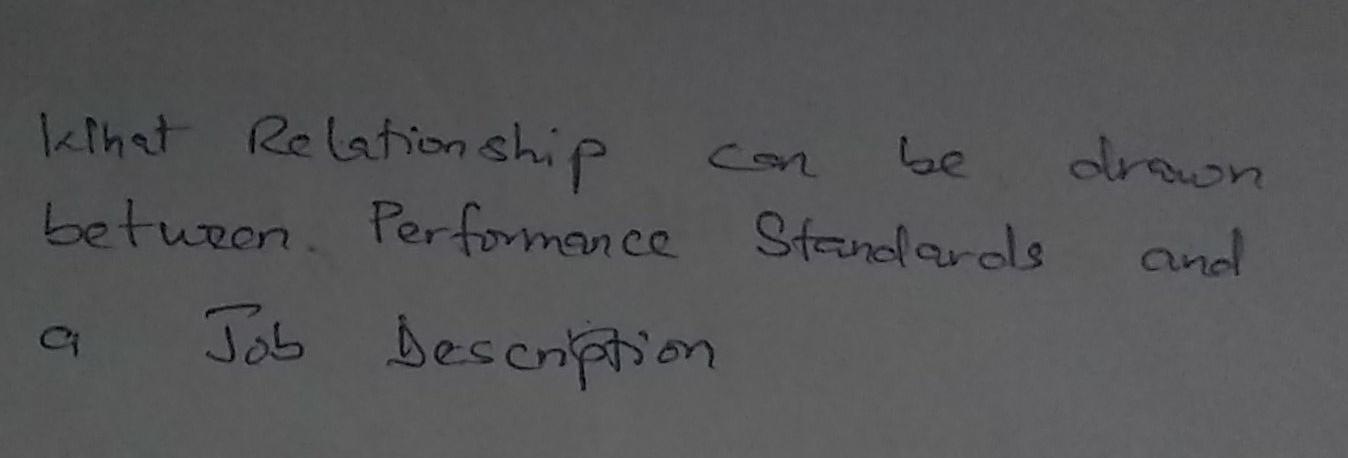 What Relationship can be drawn
between Performance Standards and
a Job Description